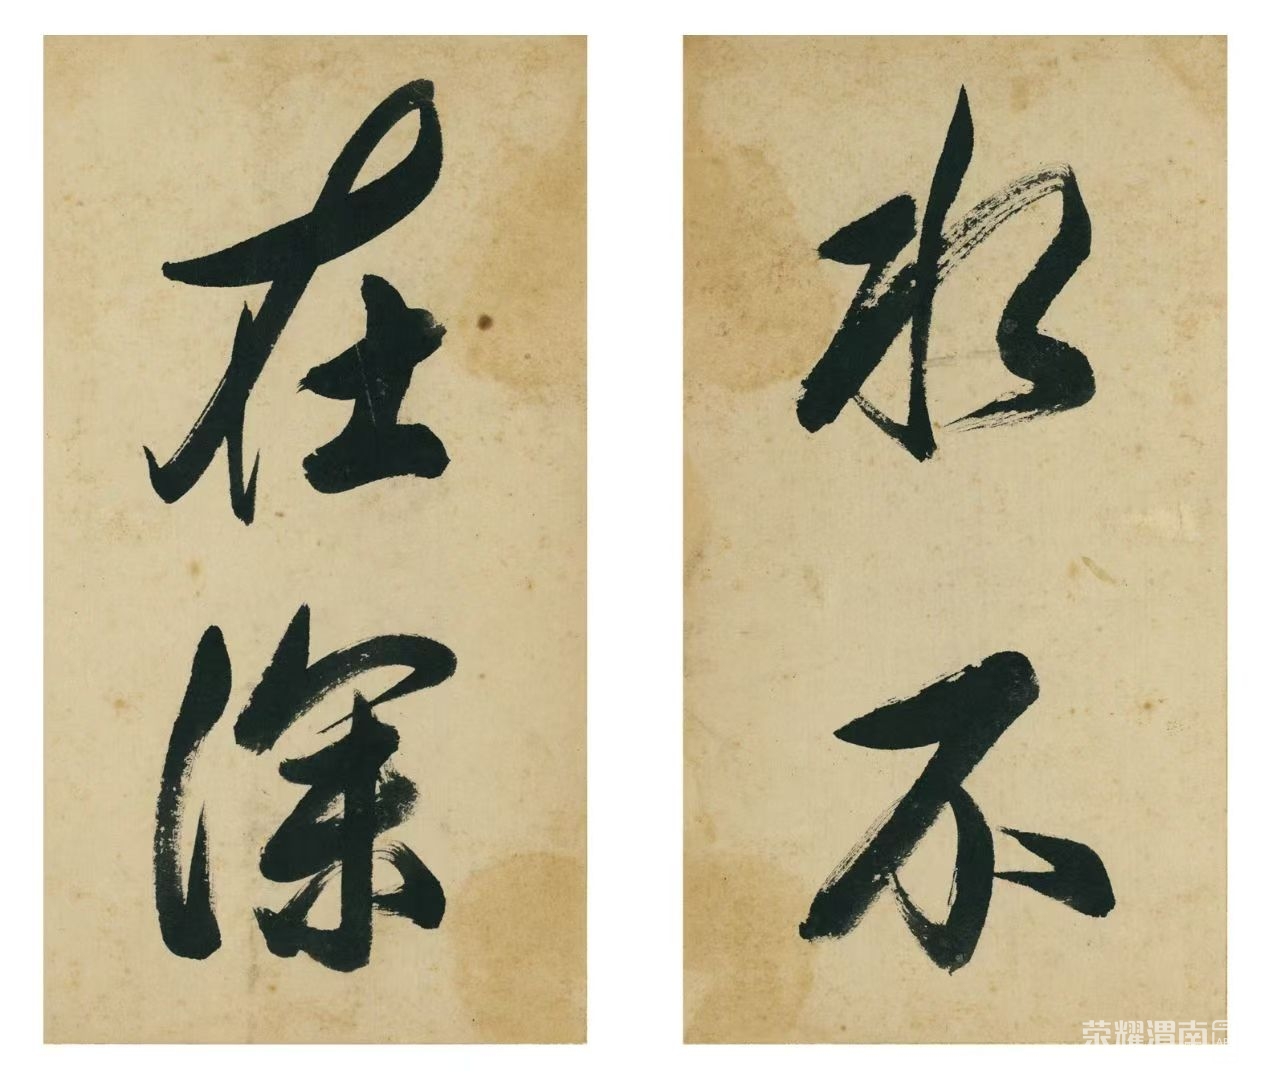 水不
在深
荣耀渭南